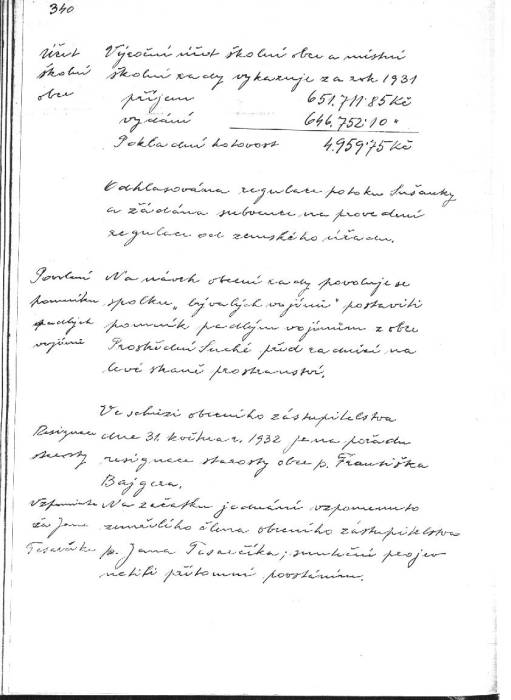 340
Účet Výroční účet školní obce a místní
školní školní rady vykazuje za rok 1931
obce příjem 651.711·85 Kč
vydání 646.752·10 "
Pokladní hotovost 4.959·75 Kč
Odhlasována regulace potoku Sušanky
a žádána subvence na provedení
regulace od zemského úřadu.
Povolení Na návrh obecní rady povoluje se
pomníku spolku „bývalých vojínů" postaviti
padlých pomník padlým vojínům z obce
vojínů Prostřední Suché před radnicí na
levé straně prostranství.
Ve schůzi obecního zastupitelstva
Resignace dne 31. května r. 1932 je na pořadu
starosty resignace starosty obce p. Františka
Bajgera.
Vzpomínka Na začátku jednání vzpomenuto
za Jana zemřelého člena obecního zástupitelstva
Tesarčíka p. Jana Tesarčíka; smuteční projev
uctili přítomní povstáním.